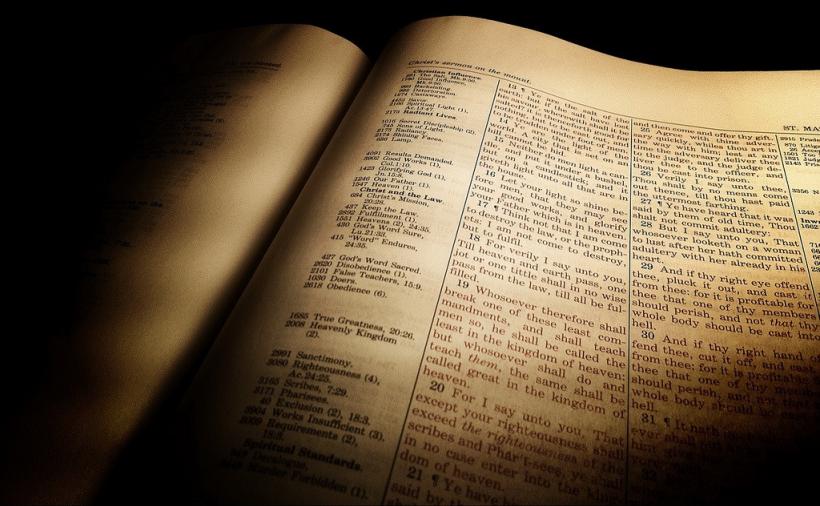 Christ's sermon on the mount.
ST. MA
Christian Influence.
Mk. 9:50.
Backsliding.
Deterioration.
Castaways.
Savor.
Spiritual Light (1),
Ac. 13:47.
2175 Radiant Lives.
1016 Secret Discipleship (2).
745 Sons of Light.
2175 Radiancy.
2174 Shining Faces.
690 Lamp.
4091 Results Demanded.
3902 Good Works (1),
Col. 1:10.
1423 Glorifying God (1),
Jn. 15:8.
Our Father (1).
1547 Heaven (1).
Christ and the Law.
684 Christ's Mission,
20:28.
437 Keep the Law.
Fulfillment (1).
1551 Heavens (2), 24:35.
430 God's Word Sure,
Lu. 21:33.
415 "Word" Endures,
24:35.
427 God's Word Sacred.
2620 Disobedience (1).
2101 False Teachers, 15:9.
1030 Doers.
2618 Obedience (6).
1685 True Greatness, 20:26.
2008 Heavenly Kingdom
(2).
2991 Sanctimony.
3080 Righteousness (4),
Ac. 24:25.
3165 Scribes, 7:29.
3171 Pharisees.
40 Exclusion (2), 18:3.
3904 Works Insufficient (3).
3009 Requirements (2),
18:3.
Spiritual Standards.
Decalogue.
Murder Forbidden (1).
13 ¶ Ye are the salt of the
earth: but if the salt have lost
his savour, wherewith shall it be
salted? it is thenceforth good for
nothing, but to be cast out, and
to be trodden under foot of men.
14 Ye are the light of the
world. A city that is set on an
hill cannot be hid.
15 Neither do men light a can-
dle, and put it under a bushel,
but on a candlestick; and it
giveth light unto all that are in
the house.
16 Let your light so shine be-
fore men, that they may see
your good works, and glorify
your Father which is in heaven.
17 ¶ Think not that I am come
to destroy the law, or the proph-
ets: I am not come to destroy,
but to fulfil.
18 For verily I say unto you,
Till heaven and earth pass, one
jot or one tittle shall in no wise
pass from the law, till all be ful-
filled.
19 Whosoever therefore shall
break one of these least com-
mandments, and shall teach
men so, he shall be called the
least in the kingdom of heaven:
but whosoever shall do and
teach them, the same shall be
called great in the kingdom of
heaven.
20 For I say unto you, That
except your righteousness shall
exceed the righteousness of the
scribes and Phar'i-sees, ye shall
in no case enter into the king-
dom of heaven.
21 ¶ Ye have
said by
and then come and offer thy gift.
25 Agree with thine adver-
sary quickly, whiles thou art in
the way with him; lest at any
time the adversary deliver thee
to the judge, and the judge de-
liver thee to the officer, and
thou be cast into prison.
26 Verily I say unto thee,
Thou shalt by no means come
out thence, till thou hast paid
the uttermost farthing.
27 ¶ Ye have heard that it was
said by them of old time, Thou
shalt not commit adultery:
28 But I say unto you, That
whosoever looketh on a woman
to lust after her hath committed
adultery with her already in his
heart.
29 And if thy right eye offend
thee, pluck it out, and cast it
from thee: for it is profitable for
thee that one of thy members
should perish, and not that thy
whole body should be cast into
hell.
30 And if thy right hand of-
fend thee, cut it off, and cast
from thee: for it is profitable
thee that one of thy members
should perish, and not that
whole body should be cast
hell.
31 ¶ It hath
ever shall